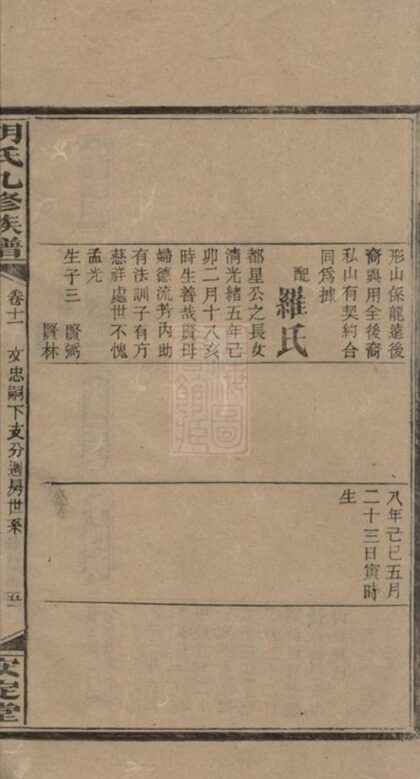 形山係龍遠後
裔與用全後裔
私山有契約合
同爲據
配羅氏
都星公之長女
清光緒五年己
卯二月十八亥
時生善哉賢母
婦德流芳內助
有法訓子有方
慈祥處世不愧
孟光
生子三 賢弼
賢林
八年己巳五月
二十三日寅時
生
胡氏九修族譜
卷十一 文忠嗣下支分週房世系 五一
安定堂